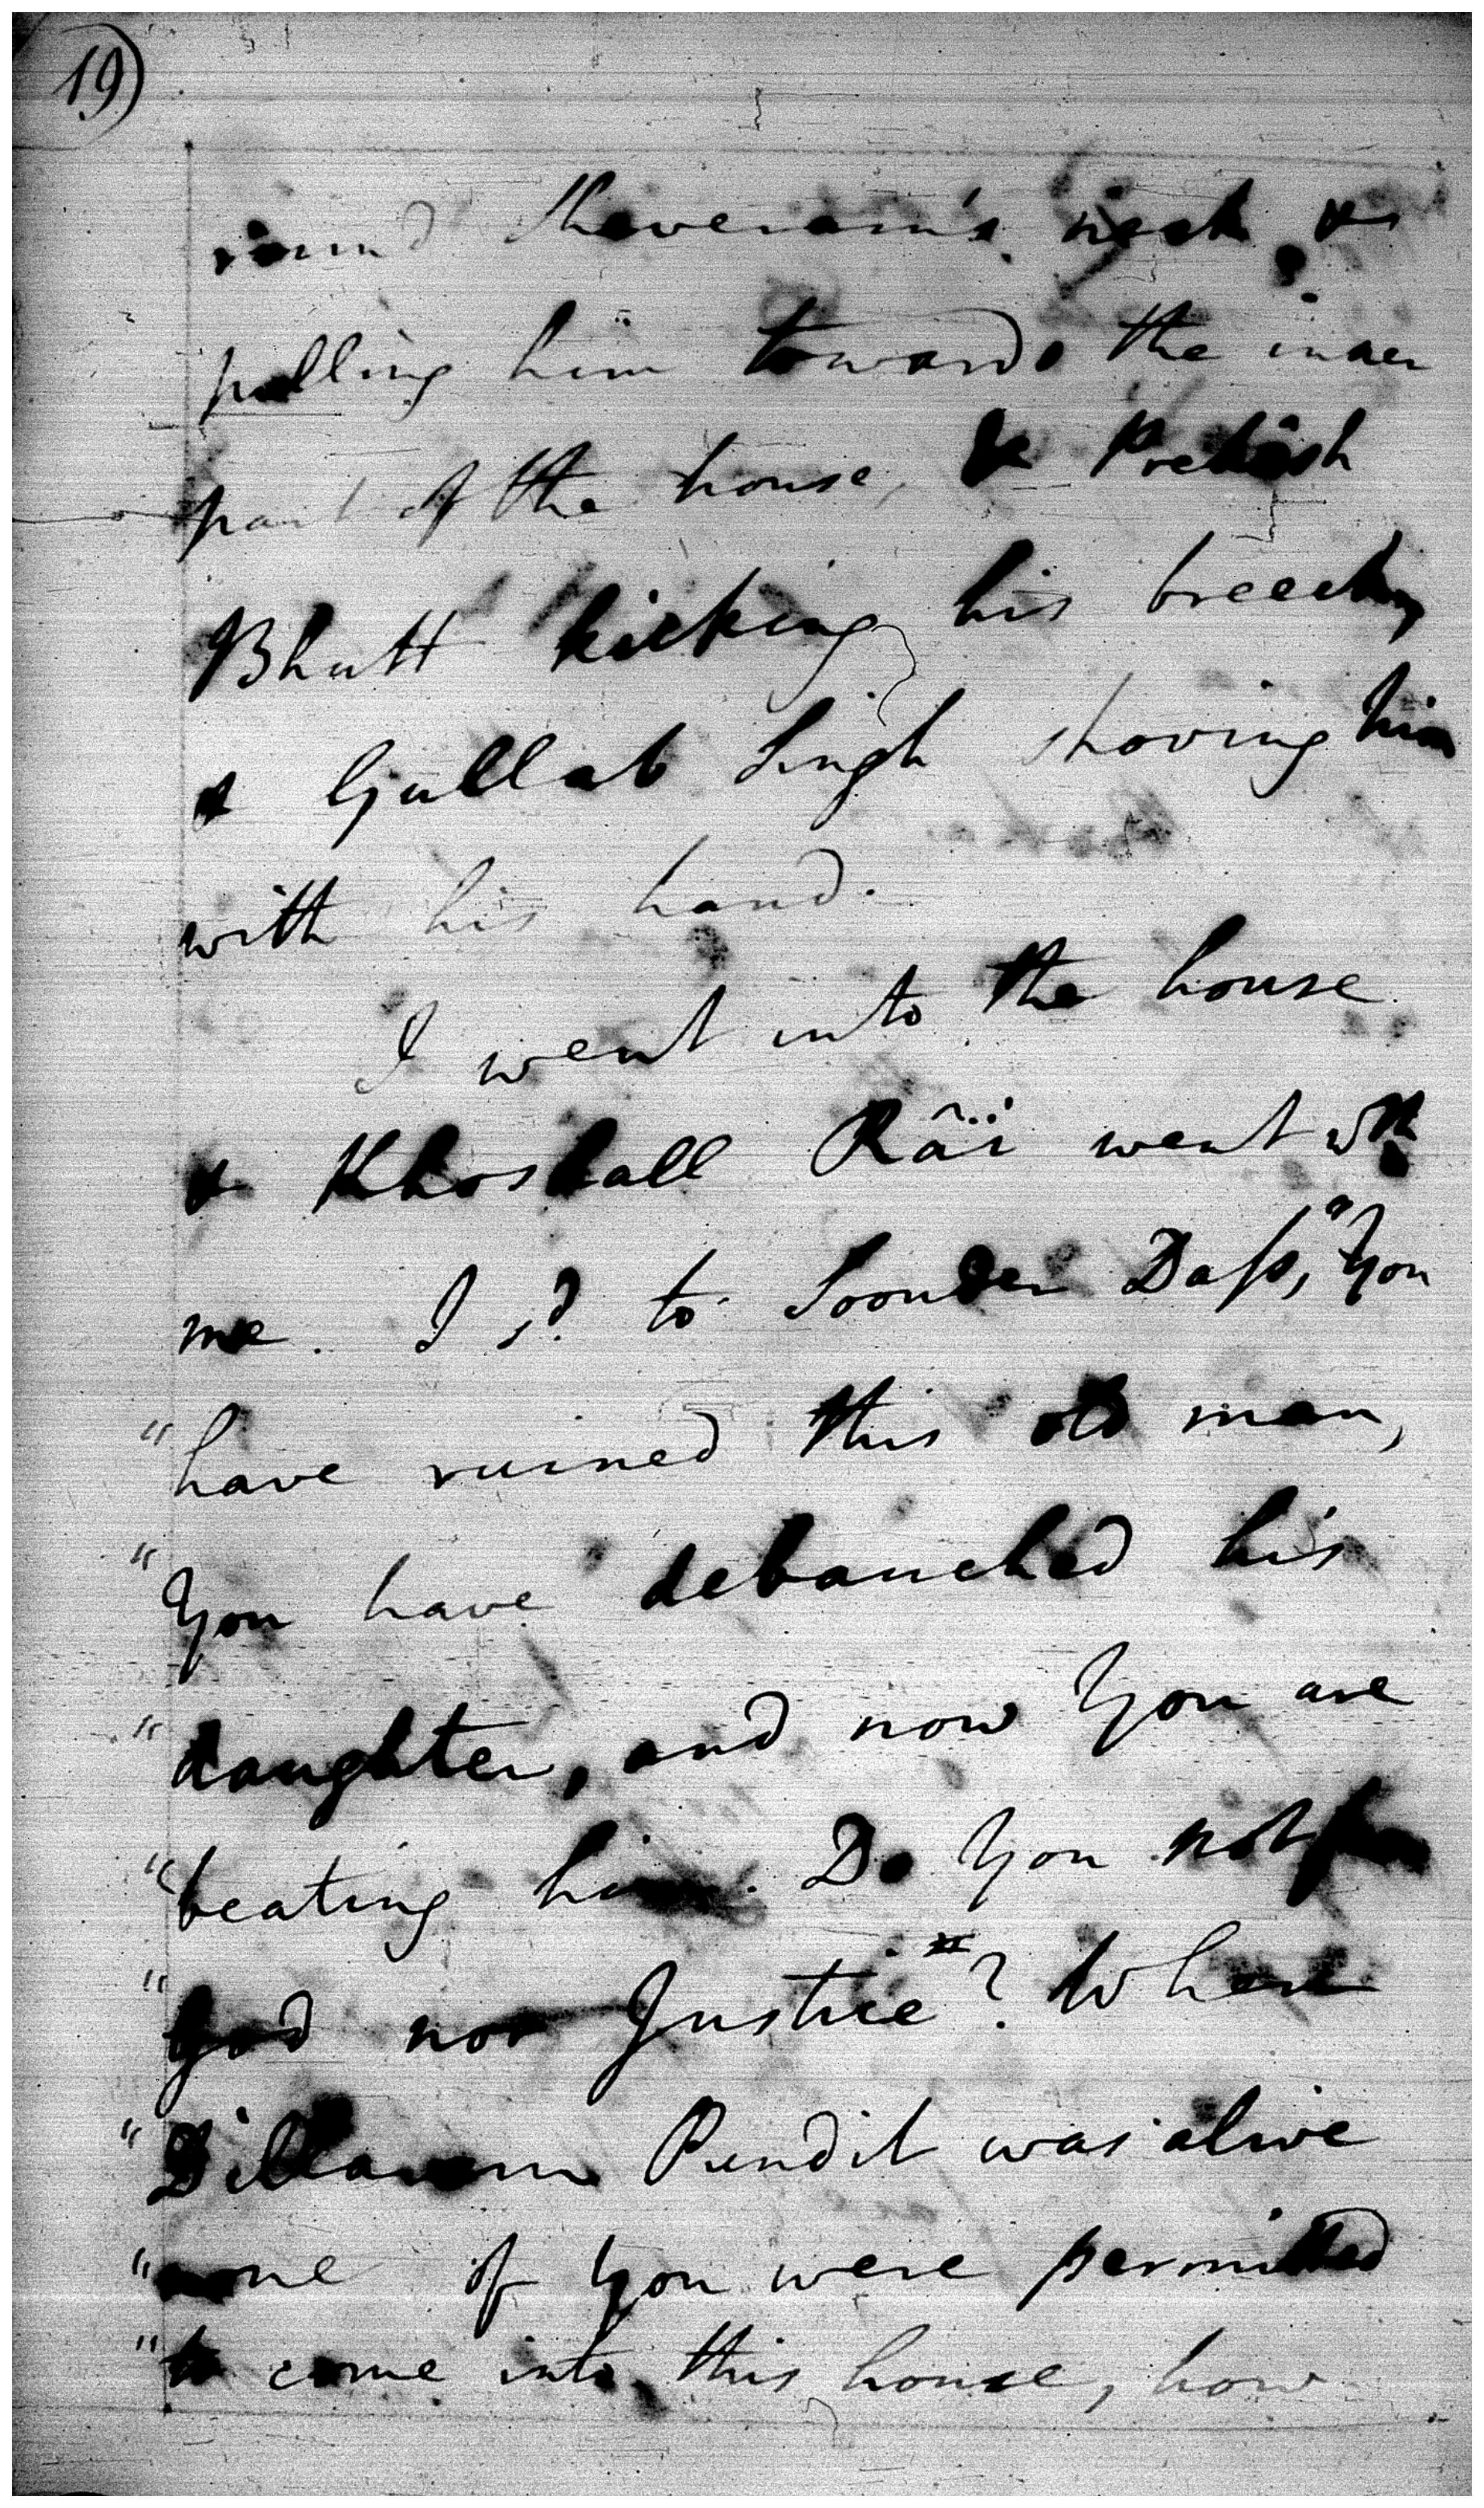 19)
round Sheveram's neck, &
pulling him towards the inner
part of the house, & Prekâsh
Bhutt kicking his breech,
& Gullab Singh shoving him
with his hand.
I went into the house
& Khoshall Râï went wth
me. I sd. to Soonder Daſs, "You
"have ruined this old man,
"You have debauched his
"daughter, and now You are
"beating him. Do You not fear
"God nor Justice"? When
" Pundit was alive
"none of You were permitted
"to come into this house, how